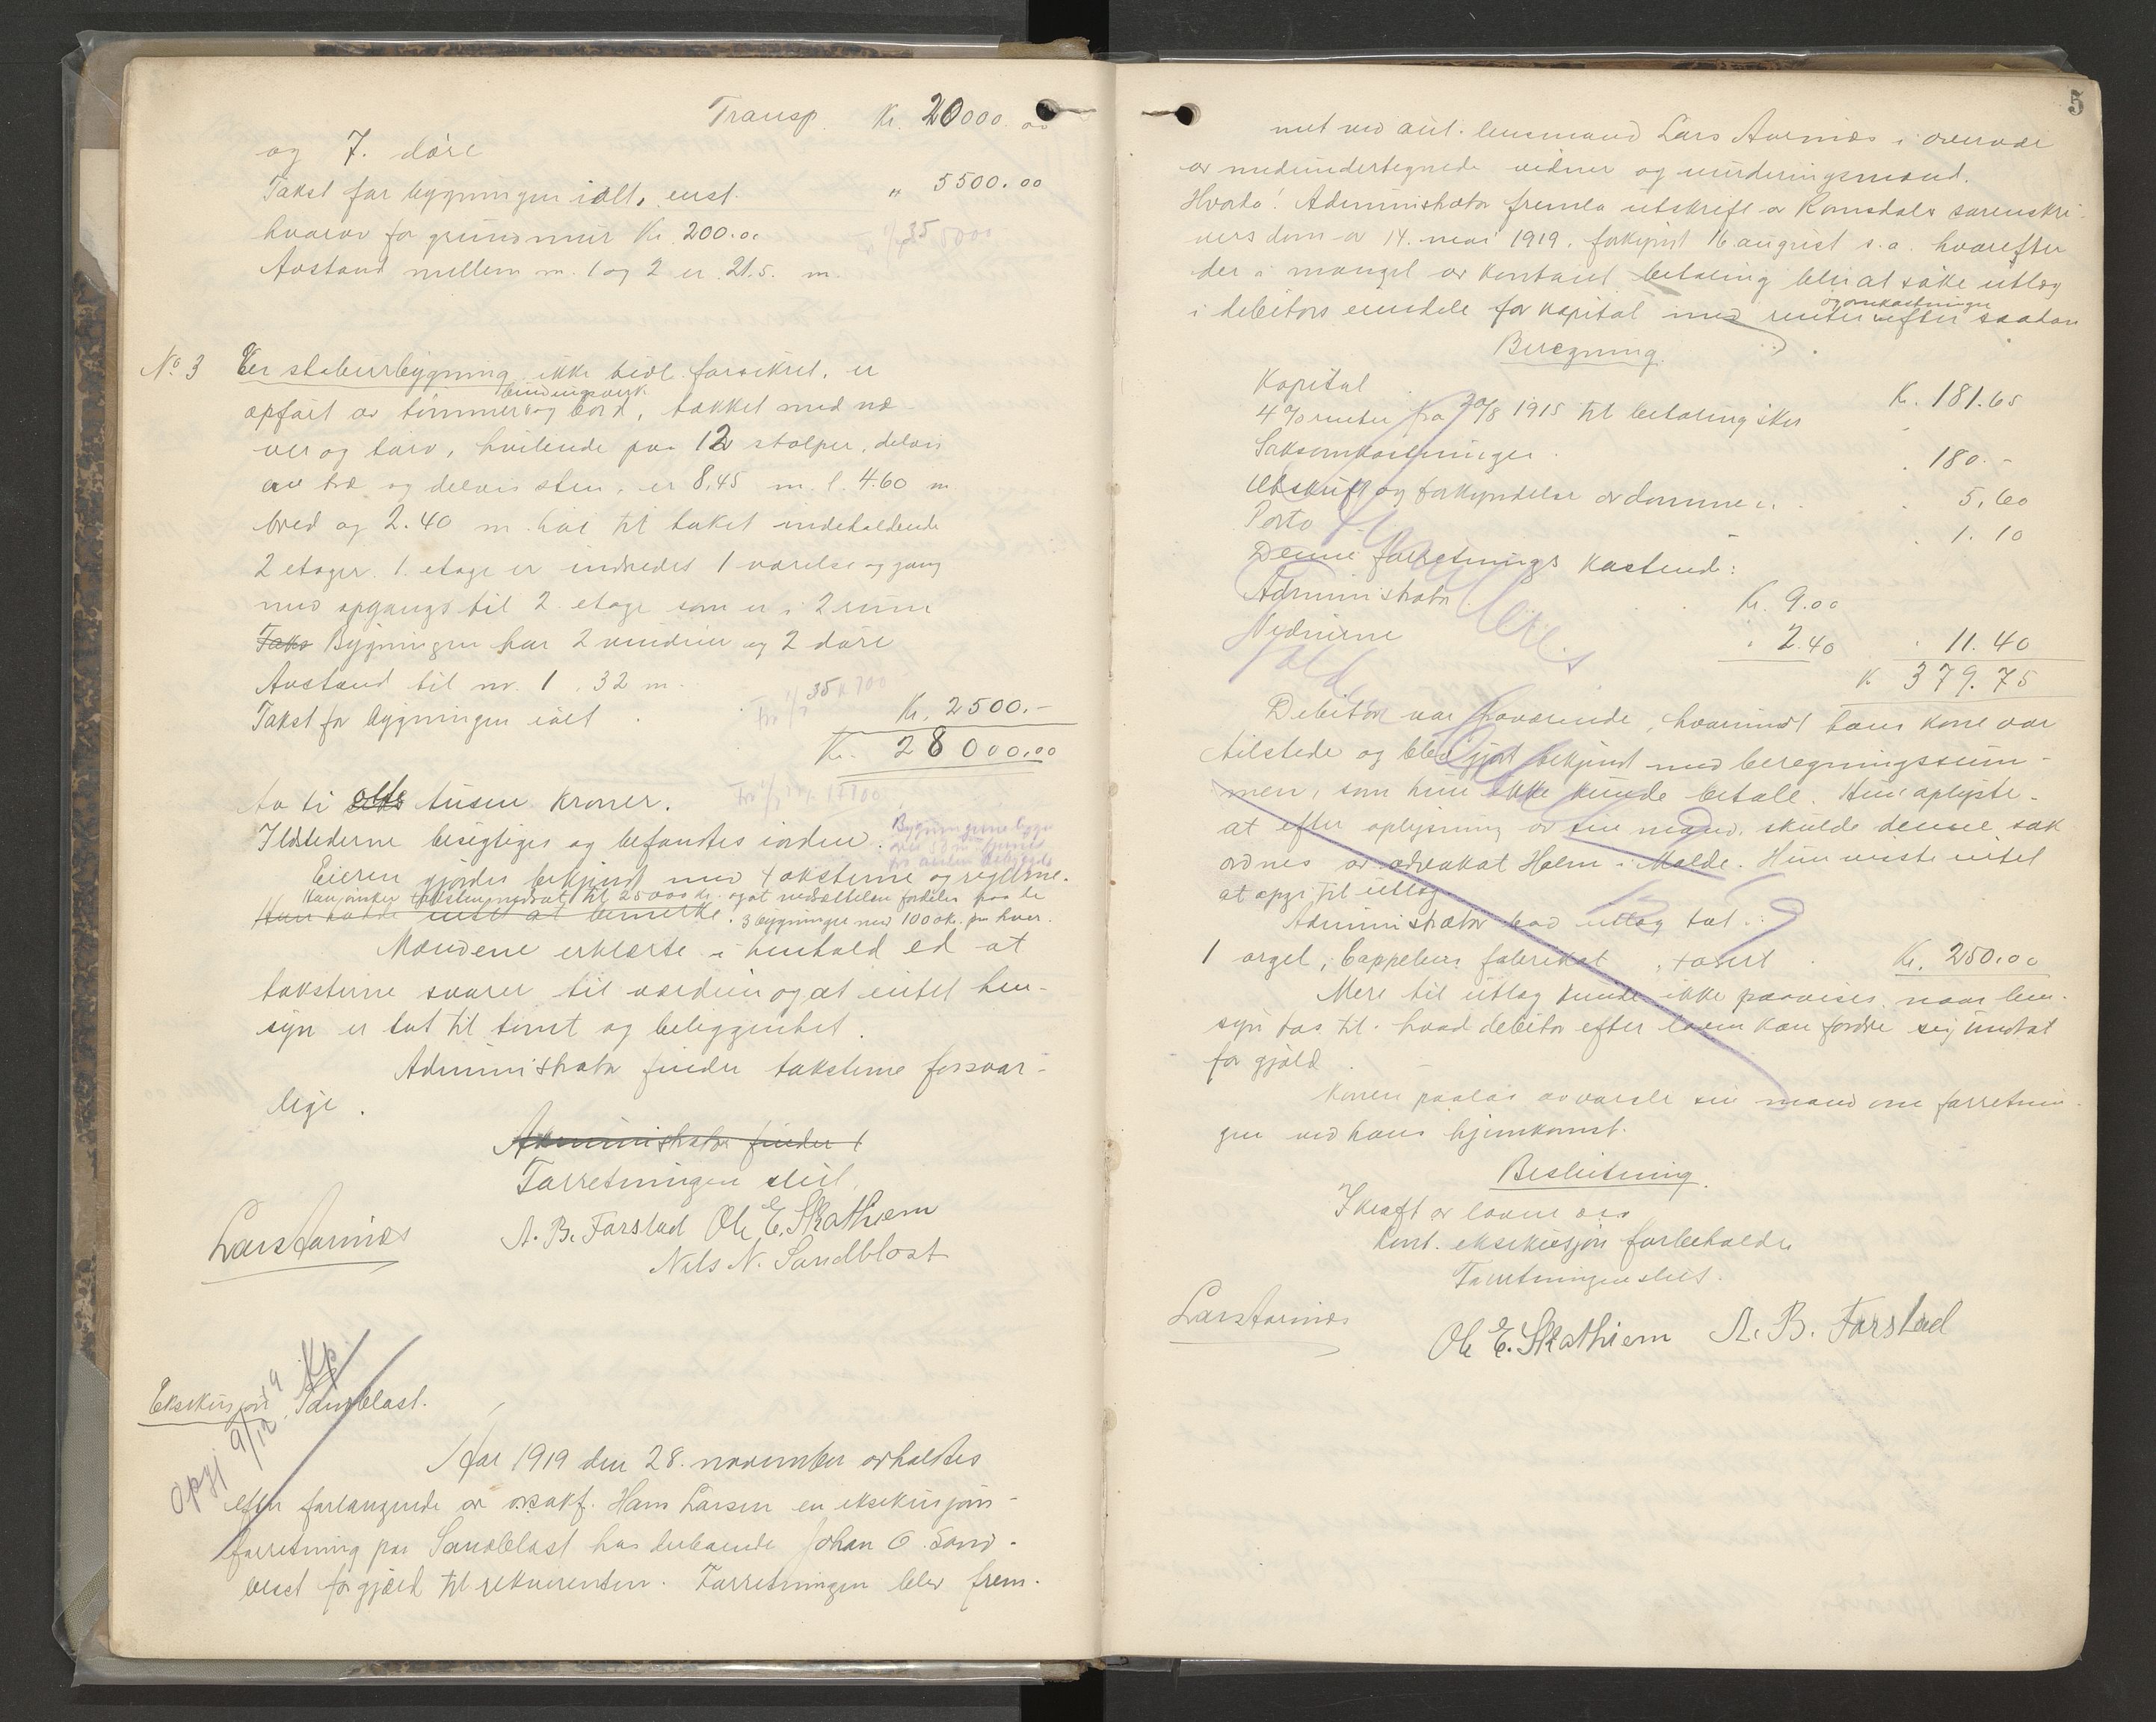 Transp. Kr. 20000.00
og 7. döre
Takst for bygningen ialt, enst. " 5500.00
hvorav for grundmur Kr. 200.00
Avstand mellem nr. 1 og 2 er 21.5. m.
No. 3 En staburbygning ikke tidl. forsikret. er
bindingsverk
opført av tömmer og bord, tækket med næ-
ver og torv, hvilende paa 12 stolper, delvis
av træ og delvis sten, er 8,45 m. l. 4.60 m
bred og 2.40 m. höi til taket indeholdende
2 etager. 1. etage er indredet 1 værelse og gang
med opgangs til 2. etage som er i 2 rum
Taks Bygningen har 2 vinduer og 2 döre
Avstand til nr. 1. 32 m.
Takst for bygningen ialt Kr. 2500.-
Kr. 28000.00
otte tusen kroner.
Ildstederne besigtiges og befandtes iorden.
Eieren gjordes bekjendt med taksterne og reglerne.
Han ønsker taksten nedsat til 25000 kr. og at nedsættelsen fordeles paa de
Han hadde intet at bemerke. 3 bygninger med 1000 kr. paa hver.
Mændene erklærte i henhold ed at
taksterne svarer til værdien og at intet hen-
syn er tat til tomt og beliggenhet.
Administrator finder taksterne forsvar-
lige.
Administrator finder t
Forretningen slut.
Lars Aarnæs A. B. Farstad Ole E. Skothiem
Nils N. Sandblost
Opgj 9/12
Eksekusjon Sandblast.
Aar 1919 den 28. november avholdtes
efter forlangende av o.r.sakf. Hans Larsen en eksekusjons-
forretning paa Sandblast hos derboende Johan O. Sand-
blast for gjæld til rekvirenten. Forretningen blev frem-
5
met ved aut. lensmand Lars Aarnæs i overvær
av medundertegnede vidner og vurderingsmænd.
Hvorda! Administrator fremla utskrift av Romsdals sorenskri-
vers dom av 14. mai 1919. forkyndt 16 august s.a. hvorefter
der i mangel av kontant betaling blir at söke utlæg
og omkostninger
i debitors eiendele for kapital med renter efter saadan
Beregning.
Kapital Kr. 181.65
4 % renter fra 20/8 1915 til betaling sker
Saksomkostninger. 180.-
Utskrift og forkyndelse av dommen. 5.60
Porto 1.10
Denne forretnings kostend:
Administrator Kr. 9.00
Vidnerne " 2.40 " 11.40
K 379.75
Debitor var fraværende, hvorimot hans kone var
tilstede og blev gjort bekjendt med beregningssum-
men, som hun ikke kunde betale. Hun oplyste
at efter oplysning av sin mand, skulde denne sak
ordnes av advokat Holm i Molde. Hun visste intet
at opgi til utlæg.
Administrator bad utlæg tat i:
1 orgel, Cappelens fabrikat, taxert Kr. 250.00
Mere til utlæg kunde ikke paavises naar hen-
syn tas til hvad debitor efter loven kan fordre sig undtat
for gjæld.
Konen paalas avvarsle sin mand om forretnin-
gen ved hans hjemkomst.
Beslutning.
I kraft av loven osv
kont. eksekusjon forbeholdes
Forretningen slut.
Lars Aarnæs
Ole E. Skothiem A. B. Farstad